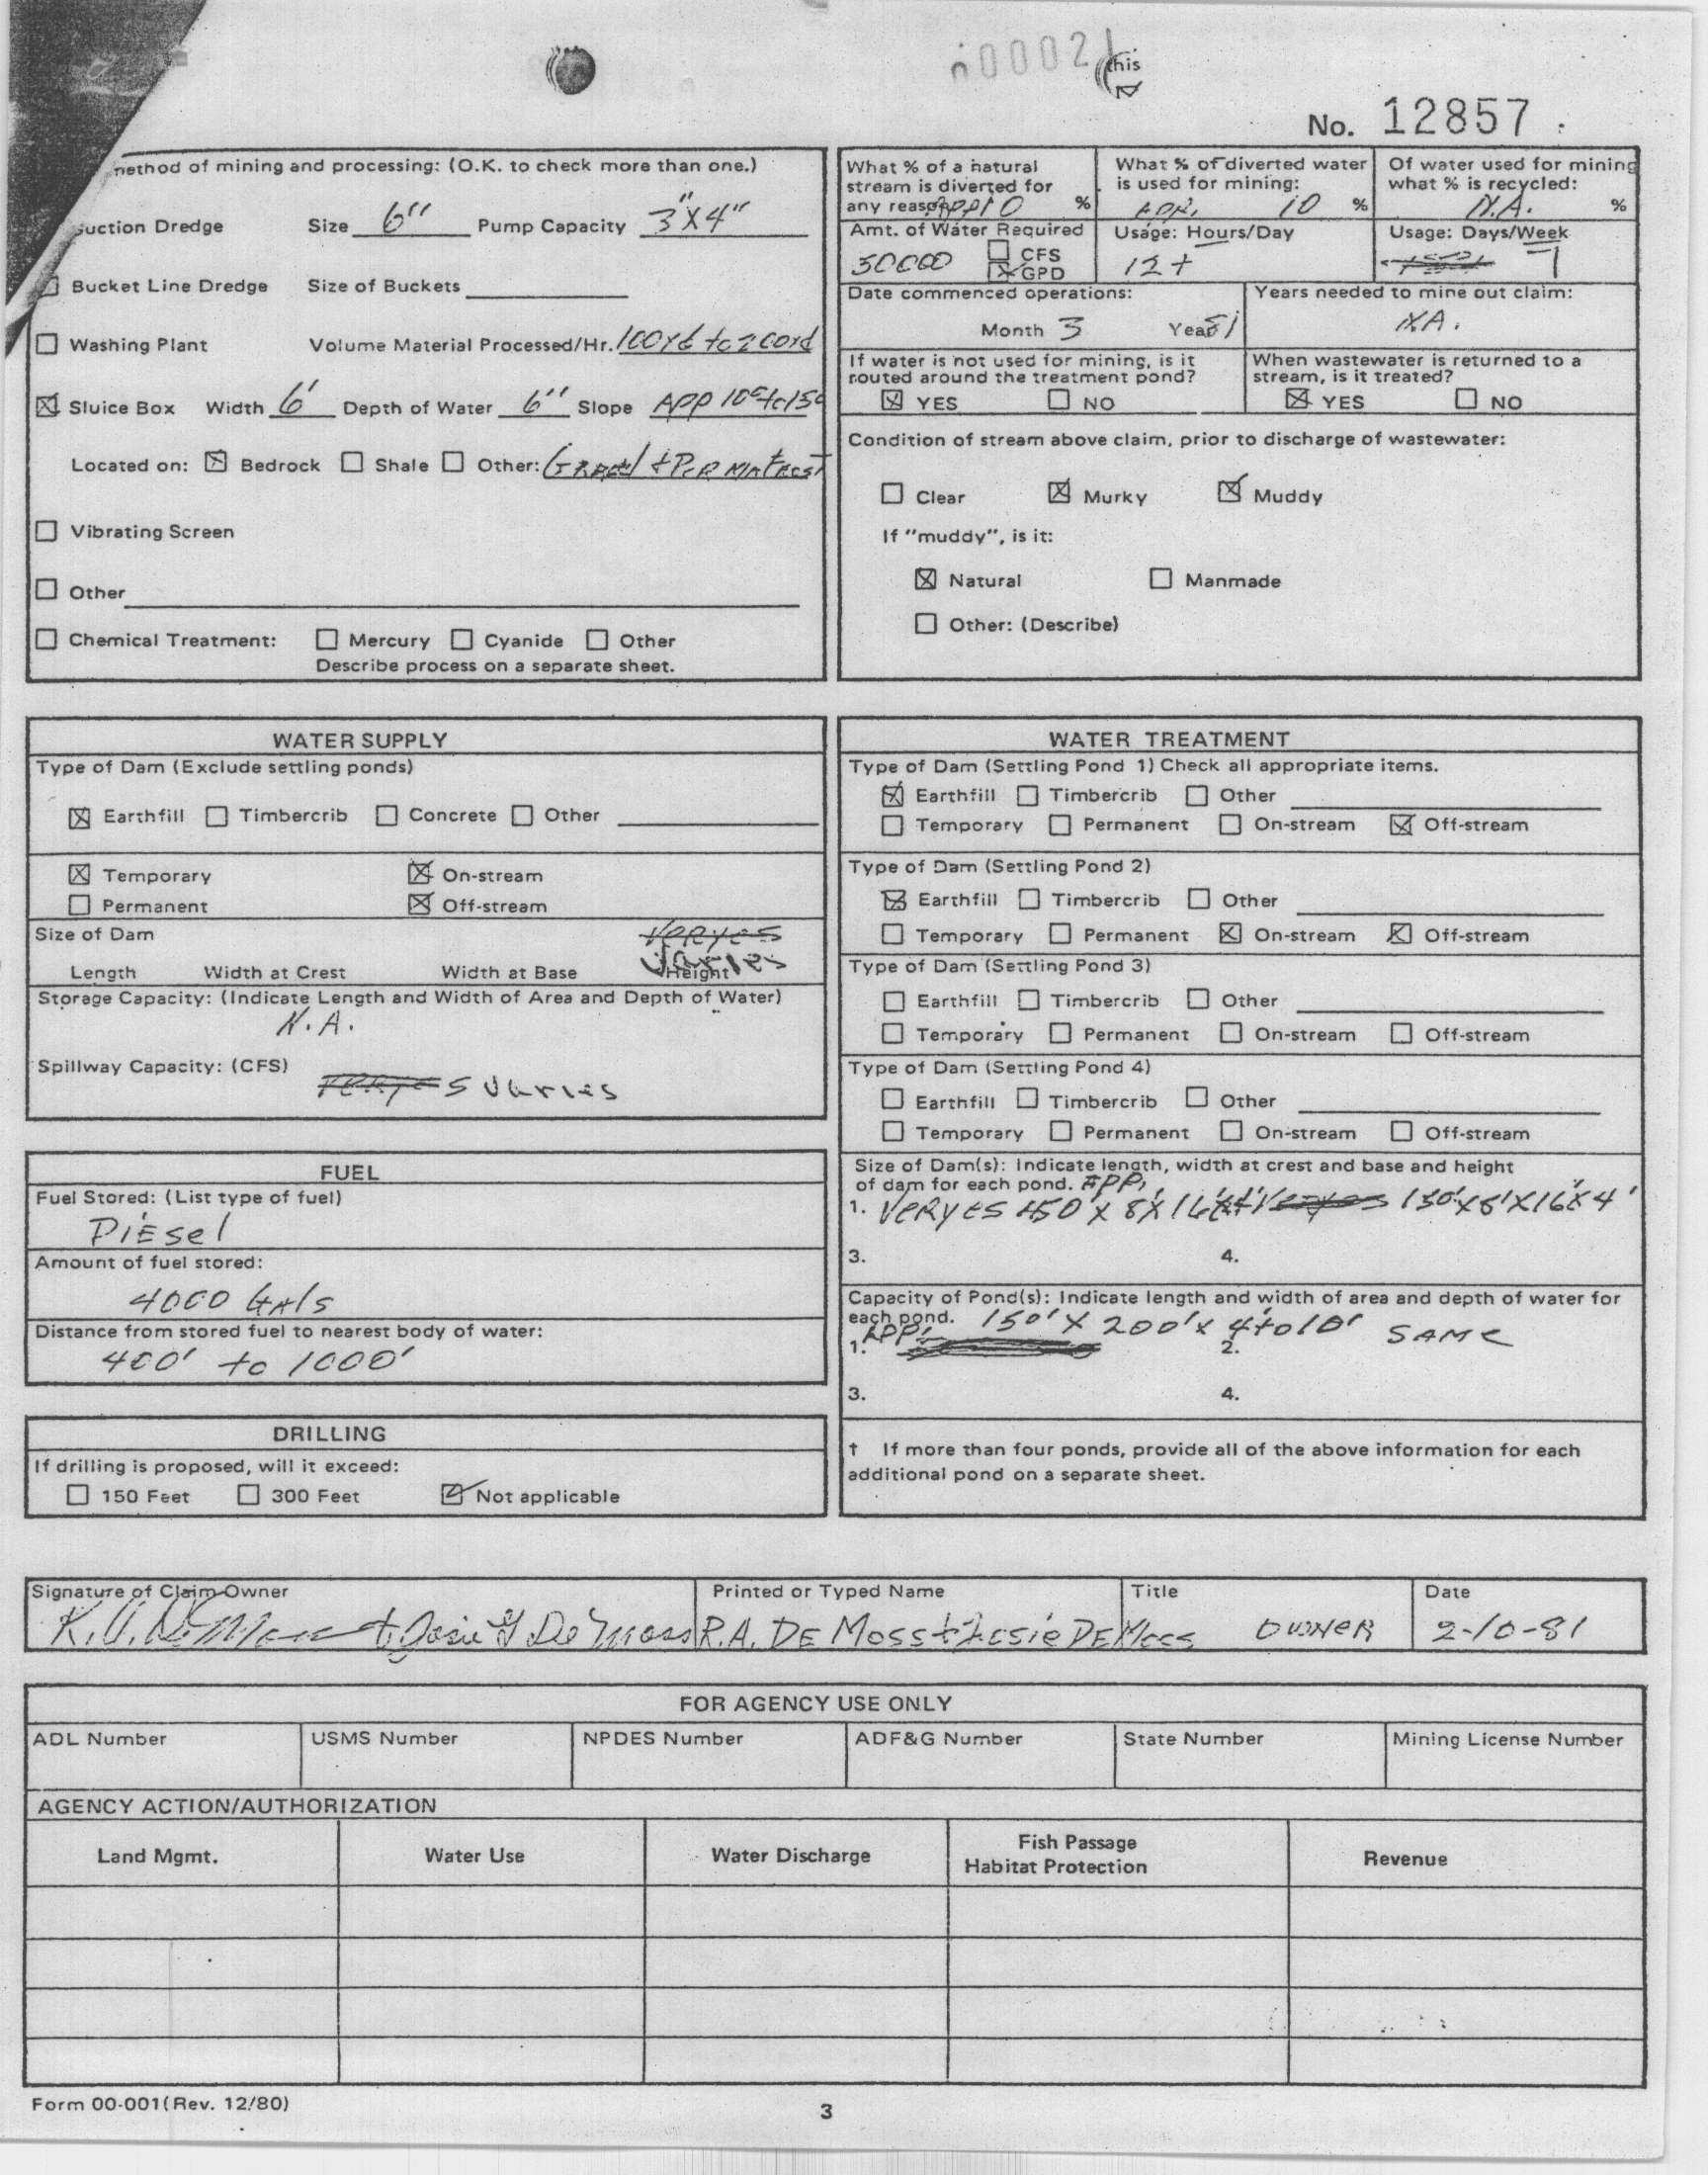 n00021
this
No. 12857
method of mining and processing: (O.K. to check more than one.)
Suction Dredge Size 6" Pump Capacity 3"X4"
Bucket Line Dredge Size of Buckets
☐ Washing Plant Volume Material Processed/Hr. 100 yd to 200 yd
☒ Sluice Box Width 6' Depth of Water 6" Slope APP 10° to 15°
Located on: ☒ Bedrock ☐ Shale ☐ Other:
☐ Vibrating Screen
☐ Other
☐ Chemical Treatment: ☐ Mercury ☐ Cyanide ☐ Other
Describe process on a separate sheet.
What % of a natural stream is diverted for any reason %
What % of diverted water is used for mining: APP. 10 %
Of water used for mining what % is recycled: N.A. %
Amt. of Water Required 50000 ☐ CFS ☒ GPD
Usage: Hours/Day 12+
Usage: Days/Week 7
Date commenced operations: Month 3 Year 81
Years needed to mine out claim: N.A.
If water is not used for mining, is it routed around the treatment pond?
☒ YES ☐ NO
When wastewater is returned to a stream, is it treated?
☒ YES ☐ NO
Condition of stream above claim, prior to discharge of wastewater:
☐ Clear ☒ Murky ☒ Muddy
If "muddy", is it:
☒ Natural ☐ Manmade
☐ Other: (Describe)
WATER SUPPLY
Type of Dam (Exclude settling ponds)
☒ Earthfill ☐ Timbercrib ☐ Concrete ☐ Other
☒ Temporary ☒ On-stream
☐ Permanent ☒ Off-stream
Size of Dam Veryes
Varies
Length Width at Crest Width at Base Height
Storage Capacity: (Indicate Length and Width of Area and Depth of Water)
N.A.
Spillway Capacity: (CFS)
Varies
FUEL
Fuel Stored: (List type of fuel)
Diesel
Amount of fuel stored:
4000 Gals
Distance from stored fuel to nearest body of water:
400' to 1000'
DRILLING
If drilling is proposed, will it exceed:
☐ 150 Feet ☐ 300 Feet ☑ Not applicable
WATER TREATMENT
Type of Dam (Settling Pond 1) Check all appropriate items.
☒ Earthfill ☐ Timbercrib ☐ Other
☐ Temporary ☐ Permanent ☐ On-stream ☒ Off-stream
Type of Dam (Settling Pond 2)
☒ Earthfill ☐ Timbercrib ☐ Other
☐ Temporary ☐ Permanent ☒ On-stream ☒ Off-stream
Type of Dam (Settling Pond 3)
☐ Earthfill ☐ Timbercrib ☐ Other
☐ Temporary ☐ Permanent ☐ On-stream ☐ Off-stream
Type of Dam (Settling Pond 4)
☐ Earthfill ☐ Timbercrib ☐ Other
☐ Temporary ☐ Permanent ☐ On-stream ☐ Off-stream
Size of Dam(s): Indicate length, width at crest and base and height
of dam for each pond. APP.
1. VERYES 150' X 8' X 16' X 4' 150' X 8' X 16' X 4'
3. 4.
Capacity of Pond(s): Indicate length and width of area and depth of water for
each pond. 150' X 200' X 4 to 10' SAME
1. APP. 2.
3. 4.
† If more than four ponds, provide all of the above information for each
additional pond on a separate sheet.
Signature of Claim Owner Printed or Typed Name Title Date
Josie G De Moss R.A. DE MOSS + Josie DEMoss OWNER 2-10-81
FOR AGENCY USE ONLY
ADL Number USMS Number NPDES Number ADF&G Number State Number Mining License Number
AGENCY ACTION/AUTHORIZATION
Land Mgmt. Water Use Water Discharge Fish Passage Habitat Protection Revenue
Form 00-001(Rev. 12/80)
3